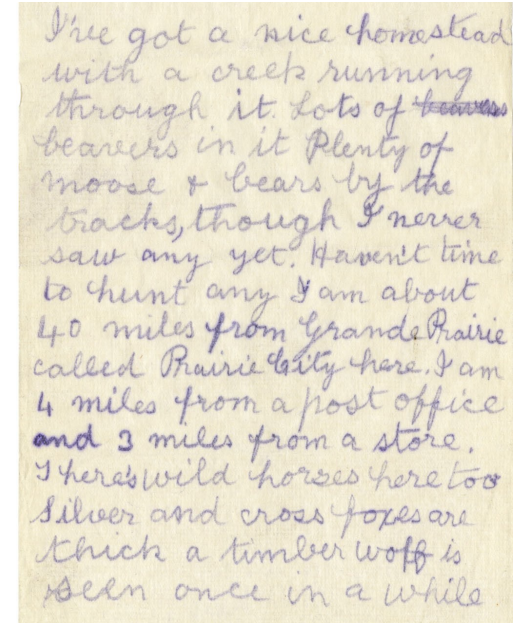 I've got a nice homestead
with a creek running
through it. Lots of beavers
beavers in it Plenty of
moose & bears by the
tracks, though I never
saw any yet. Haven't time
to hunt any I am about
40 miles from Grande Prairie
called Prairie City here. I am
4 miles from a post office
and 3 miles from a store.
There's wild horses here too
Silver and cross foxes are
thick a timber woff is
seen once in a while